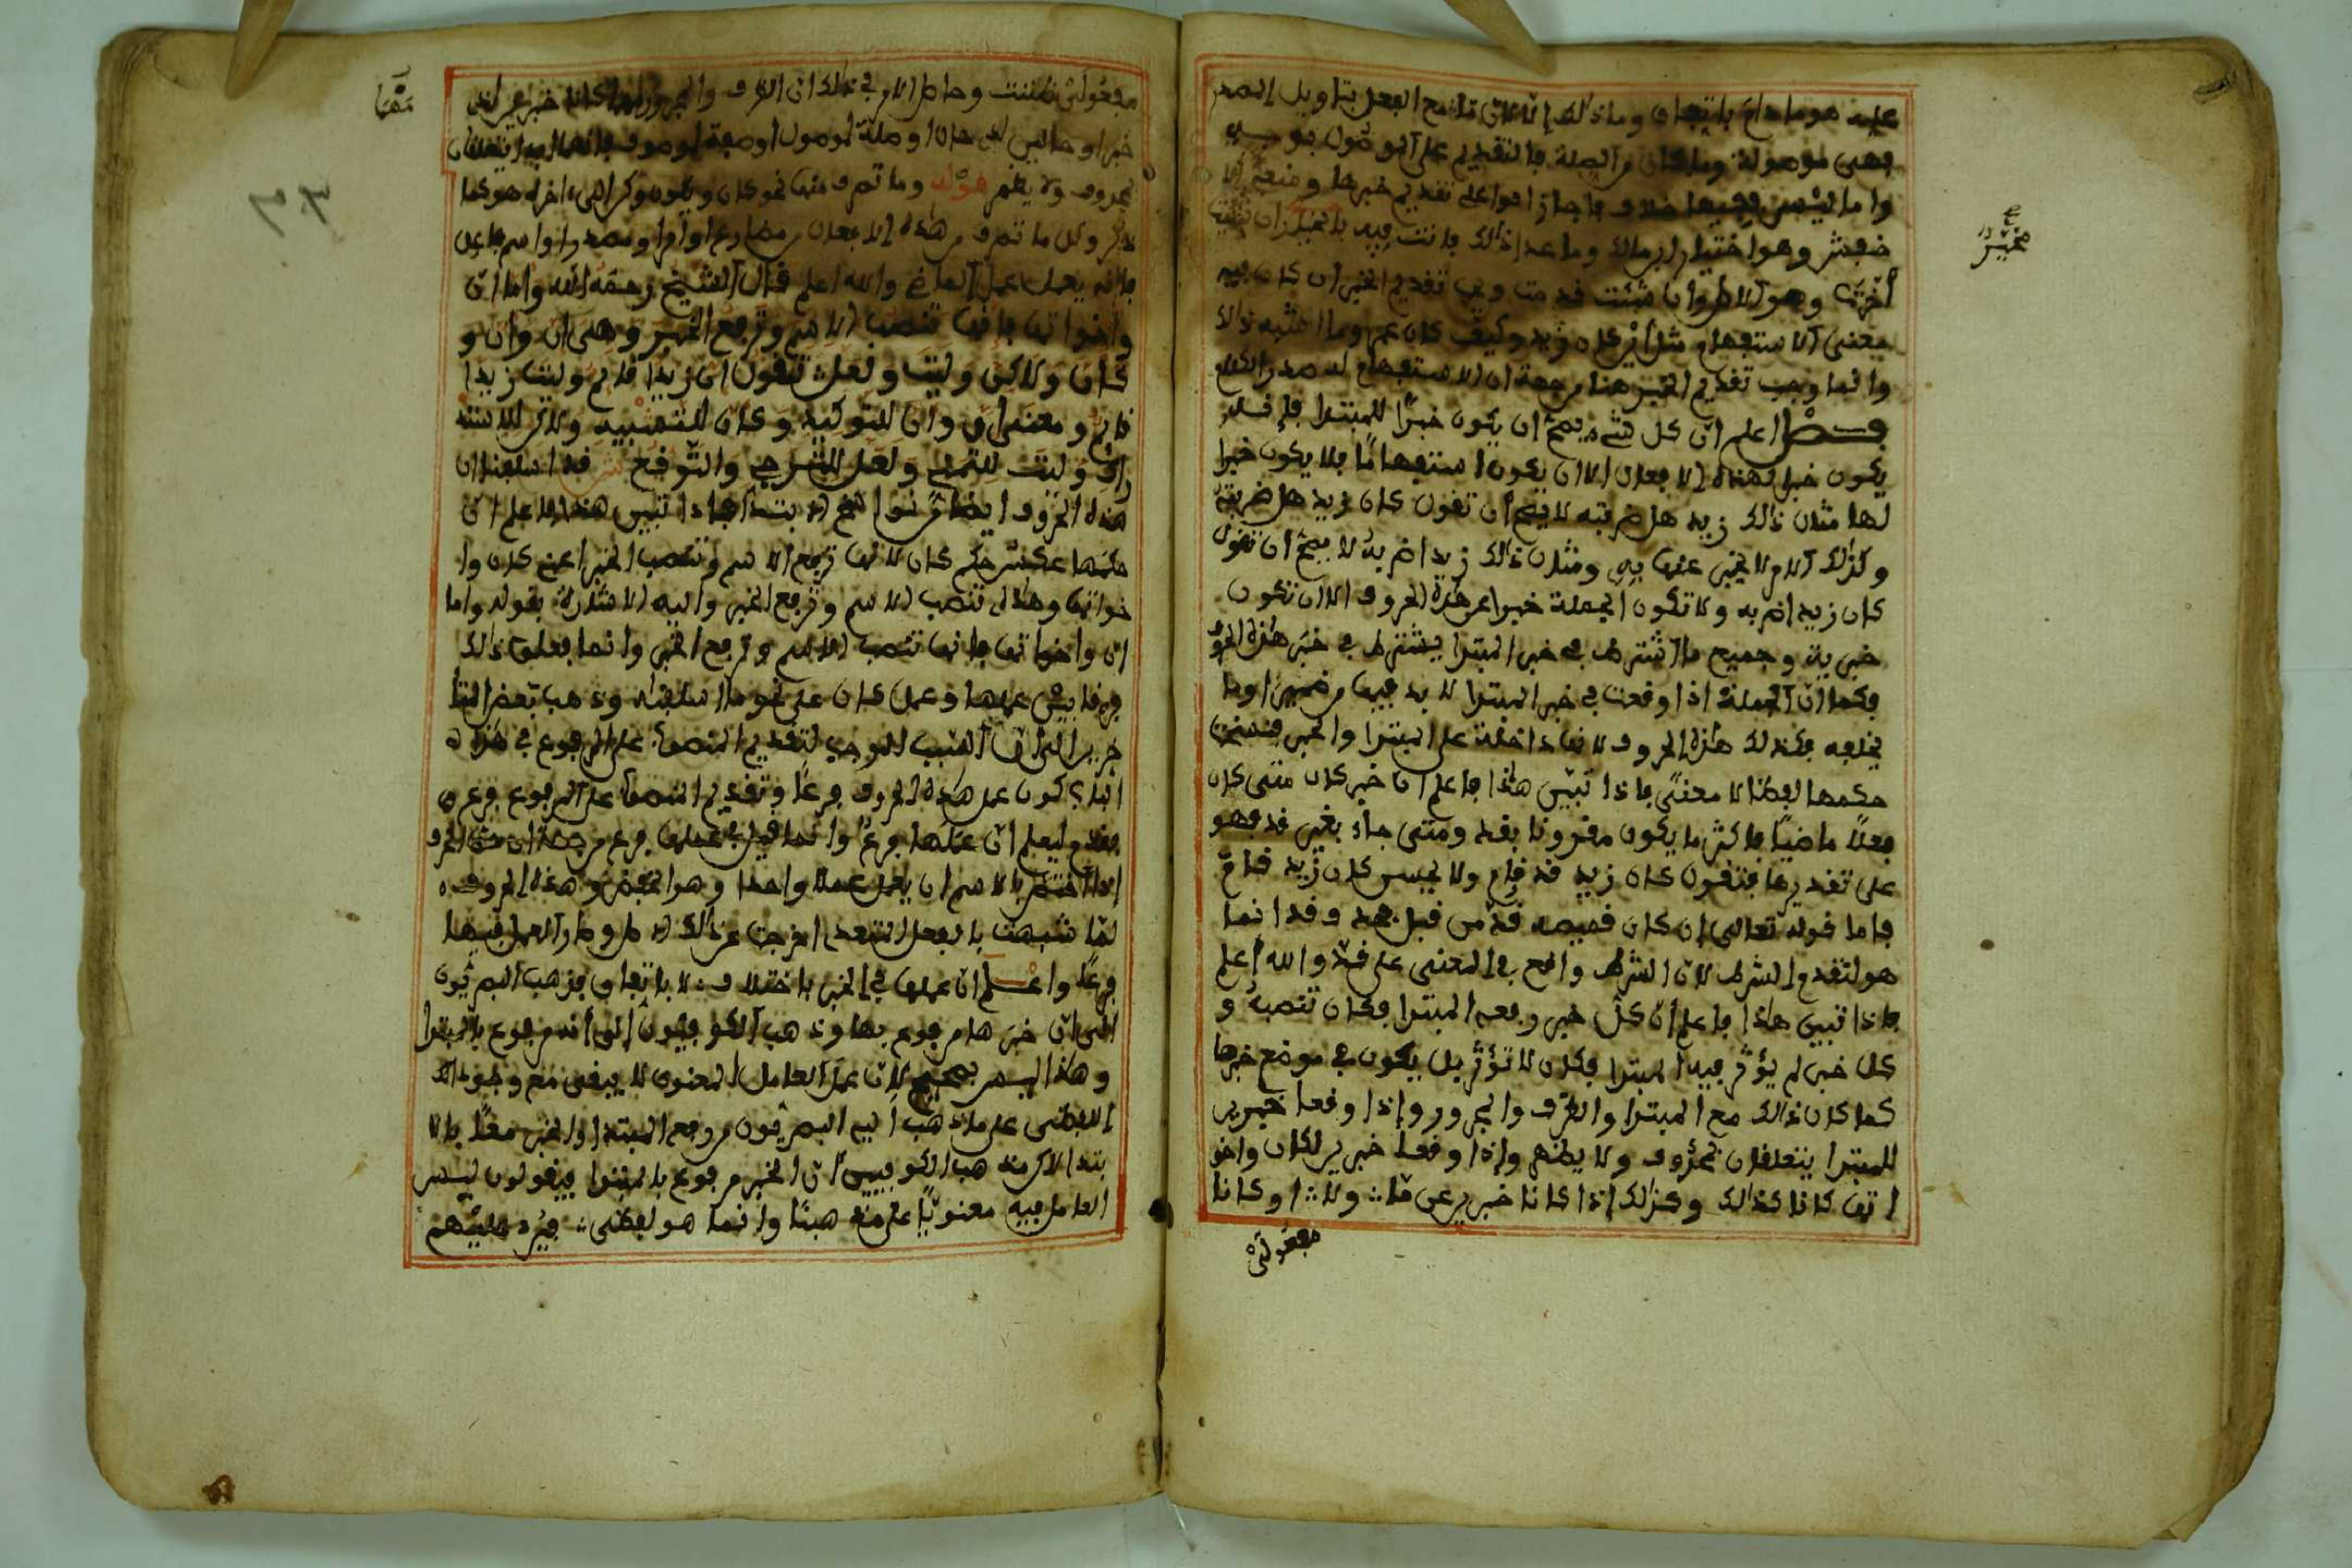 عليه هو ما دام باتفاق وما ذاك إلا لأن ما مع الفعل بتاويل المصدر
فهي موصولة وما كان من الصلة فالتقديم على الموصول
واما ليس ففيها خلاف فاجاز قوم على تقديم خبرها ومنعه
وهو اختيار ابن مالك وما عدا ذالك فانت فيه بالخيار ان شئت
أخرت وهو الاصل وان شئت قدمت ويجب تقديم الخبر ان كان فيه
معنى الاستفهام مثل اين كان زيد وكيف كان عمر وما اشبه ذالك
وانما وجب تقديم الخبر هنا من جهة ان الاستفهام له صدر الكلام
فصل اعلم ان كل شيء يصح ان يكون خبرا للمبتدا فانه
يكون خبرا لهذه الافعال الا ان يكون استفهاما فلا يكون خبرا
لها مثال ذالك زيد هل ضربته لا يصح أن تقول كان زيد هل ضربته
وكذلك الامر لا يخبر عنها به ومثال ذالك زيد اضربه لا يصح ان تقول
كان زيد اضربه ولا تكون الجملة خبرا عن هذه الحروف الا ان تكون
خبرية وجميع ما اشترط في خبر المبتدا يشترط في خبر هذه الحروف
فكما ان الجملة اذا وقعت في خبر المبتدا لا بد فيها من ضمير او ما
يخلفه فكذلك هذه الحروف لانها داخلة على المبتدا والخبر
حكمها لفظا لا معنى فاذا تبين هذا فاعلم ان خبر كان متى كان
فعلا ماضيا فاكثر ما يكون مقرونا بقد ومتى جاء بغير قد فهو
على تقديرها فتقول كان زيد قد قام ولا يحسن كان زيد قام
فاما قوله تعالى ان كان قميصه قد من قبل فقد انما
هو لتقدم الشرط لان الشرط واضح في المعنى على قد والله أعلم
فاذا تبين هاذا فاعلم ان كل خبر رفعه المبتدا فكان تنصبه و
كل خبر لم يؤثر فيه المبتدا فكان لا تؤثر بل يكون في موضع خبرها
كما كان ذالك مع المبتدا والظرف والمجرور واذا وقعا خبرين
للمبتدا يتعلقان بمحذوف ولا يظهر واذا وقعا خبرين لكان واخو
اتها كانا كذالك وكذلك اذا كانا خبرين عن ما ولا وكانا
مفعولي
مفعولي ظننت وحاصل الامر في ذلك ان الظرف والمجرور
خبرا او حالين او صلة لموصول او صفة لموصوف فانهما ابدا يتعلقان
بمحذوف ولا يظهر قوله وما تصرف منها نحو كان ويكون وكن الى اخره هو كما
ذكر وكل ما تصرف من هذه الافعال من مضارع او امر او مصدر او اسم فاعل
فانه يعمل عمل الماضي والله اعلم قال الشيخ رحمه الله واما ان
واخواتها فانها تنصب الاسم وترفع الخبر وهي ان وان و
كان ولاكن وليت ولعل تقول ان زيدا قايم وليت زيدا
قايم ومعنى ان وان للتوكيد وكان للتشبيه ولاكن للاستد
راك وليت للتمني ولعل للترجي والتوقع ش قد اسلفنا ان
هذه الحروف ايضا من نواسخ الابتداء فاذا تبين هذا فاعلم ان
حكمها عكس حكم كان لانها ترفع الاسم وتنصب الخبر اعني كان وا
خواتها وهذه تنصب الاسم وترفع الخبر واليه الاشارة بقوله واما
ان واخواتها فانها تنصب الاسم وترفع الخبر وانما فعلوا ذالك
فرقا بين عملها وعمل كان على نحو ما اسلفناه وذهب بعض المتا
خرين الى ان السبب الموجب لتقديم المنصوب على المرفوع في هذا
الباب كون عمل هذه الحروف فرعا وتقديم المنصوب على المرفوع فرع
فقدم ليعلم ان عملها فرع وانما قيل في عملها فرع من جهة ان حق الحرف
اذا اختص بالاسم ان يعمل عملا واحدا وهو الخفض وهذه الحروف
لما شبهت بالفعل المتعدي اخرجت عن ذالك الاصل وصار العمل فيها
فرعا واعلم ان عملها في الخبر باختلاف لا باتفاق فذهب البصريون
الى ان خبرها مرفوع بها وذهب الكوفيون الى انه مرفوع بالمبتدا
وهذا ليس بصحيح لان عمل العامل المعنوي لا يبقى مع وجود
اللفظي على ما ذهب اليه البصريون من رفع المبتدا والخبر معا بالا
بتدا لاكن مذهب الكوفيين ان الخبر مرفوع بالمبتدا فيقولون ليس
العامل فيه معنويا على مذهبنا وانما هو لفظي فيرد عليهم